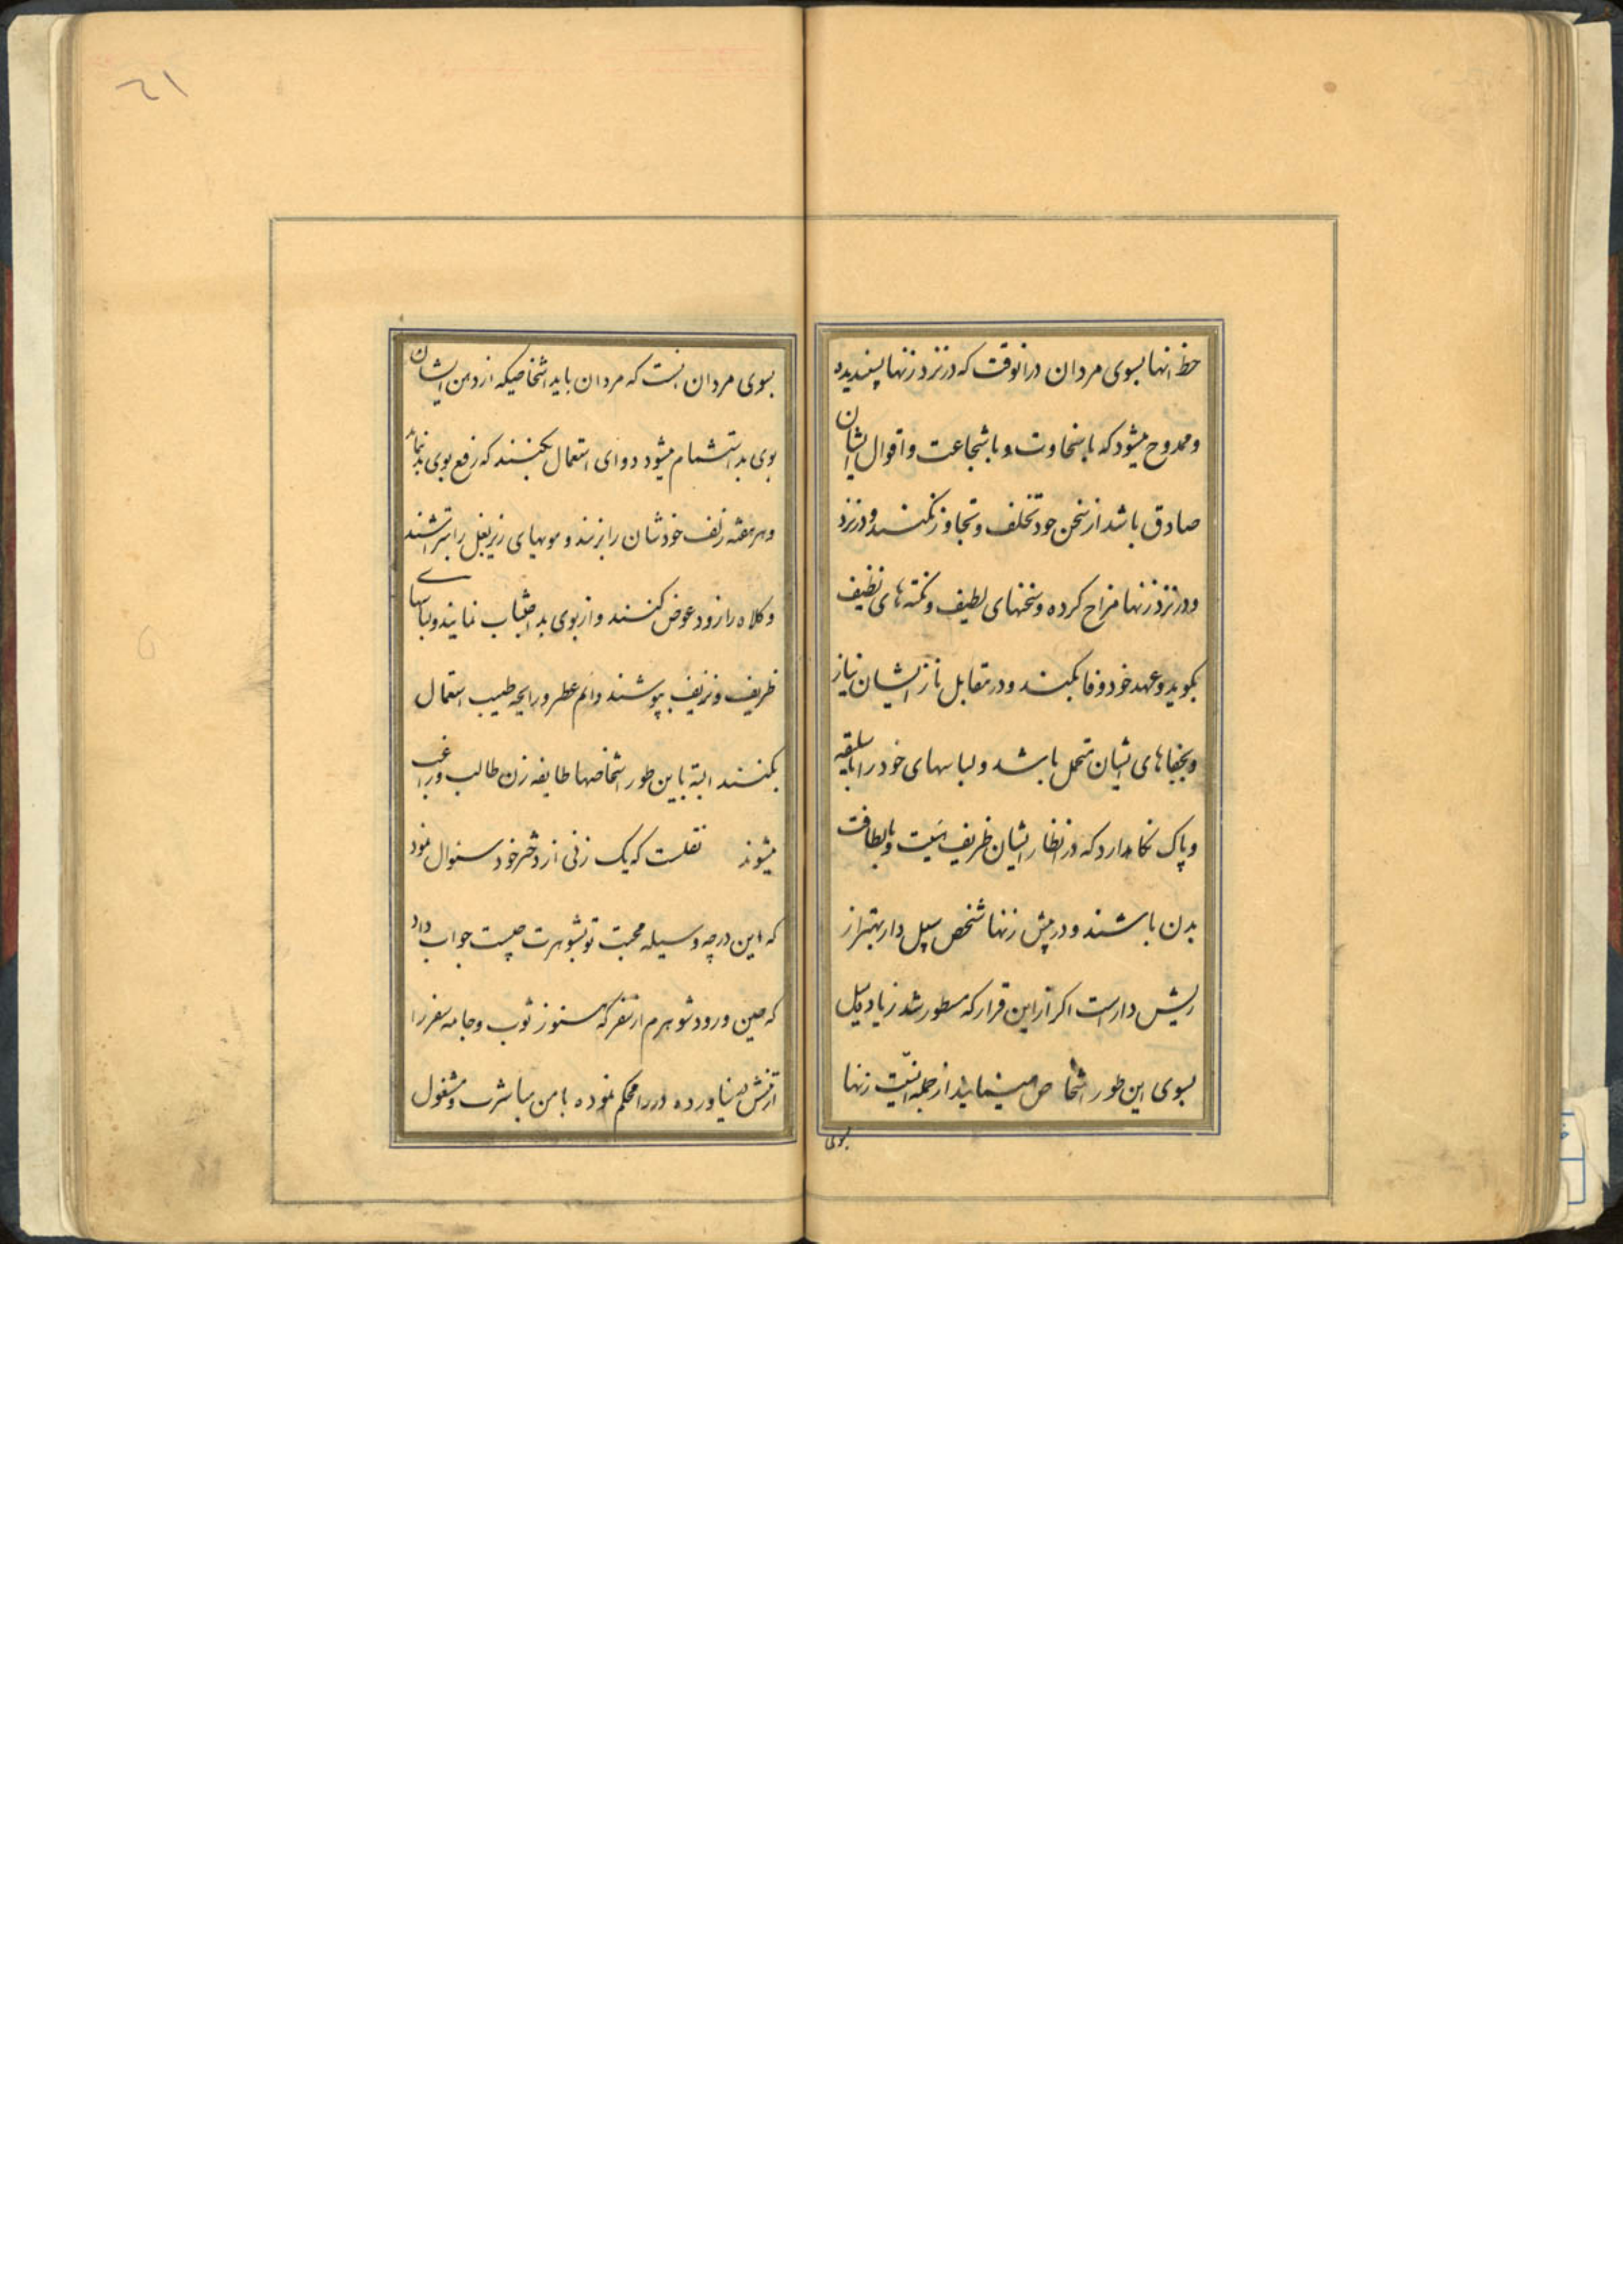 حظ انها بسوی مردان درانوقت که در نزد زنها پسندیده
و ممدوح میشود که با سخاوت و با شجاعت و اقوال ایشان
صادق باشد از سخن خود تخلف و تجاوز نکنند و در نزد
و در نزد زنها مزاح کرده و سخنهای لطیف و نکته های نظیف
بکوید و عهد خود وفا بکنند و در مقابل ناز ایشان نیاز
و بجفاهای ایشان متحمل باشد و لباسهای خود را با سلیقه
و پاک نکاهدارد که در انظار ایشان ظریف هیئت و با لطافت
بدن باشند و در پیش زنها شخص سپل دار بهتر از
ریش دار است اکر از این قرار که مسطور شد زیاد میل
بسوی این طور اشخاص مینمایند از جمله انسیّت زنها
بسوی
۲۱
بسوی مردان انست که مردان باید اشخاصیکه از دهن ایشان
بوی بد استشمام میشود دوای استعمال بکنند که رفع بوی بد نماید
و هر هفته زلف خودشان را بزنند و مویهای زیر بغل را بتراشند
و کلاه را زود عوض کنند و از بوی بد اجتناب نمایند و لباسهای
ظریف و نزیف بپوشند دائم عطر و رایحه طیب استعمال
بکنند البته باین طور اشخاصها طایفه زن طالب و راغب
میشوند نقلست که یک زنی از دختر خود سئوال نمود
که این درجه وسیله محبت تو بشوهرت چیست جواب داد
که حین ورود شوهرم از سفر که هنوز ثوب و جامه سفر را
از تنش در نیاورده در را محکم نموده با من مباشرت و مشغول